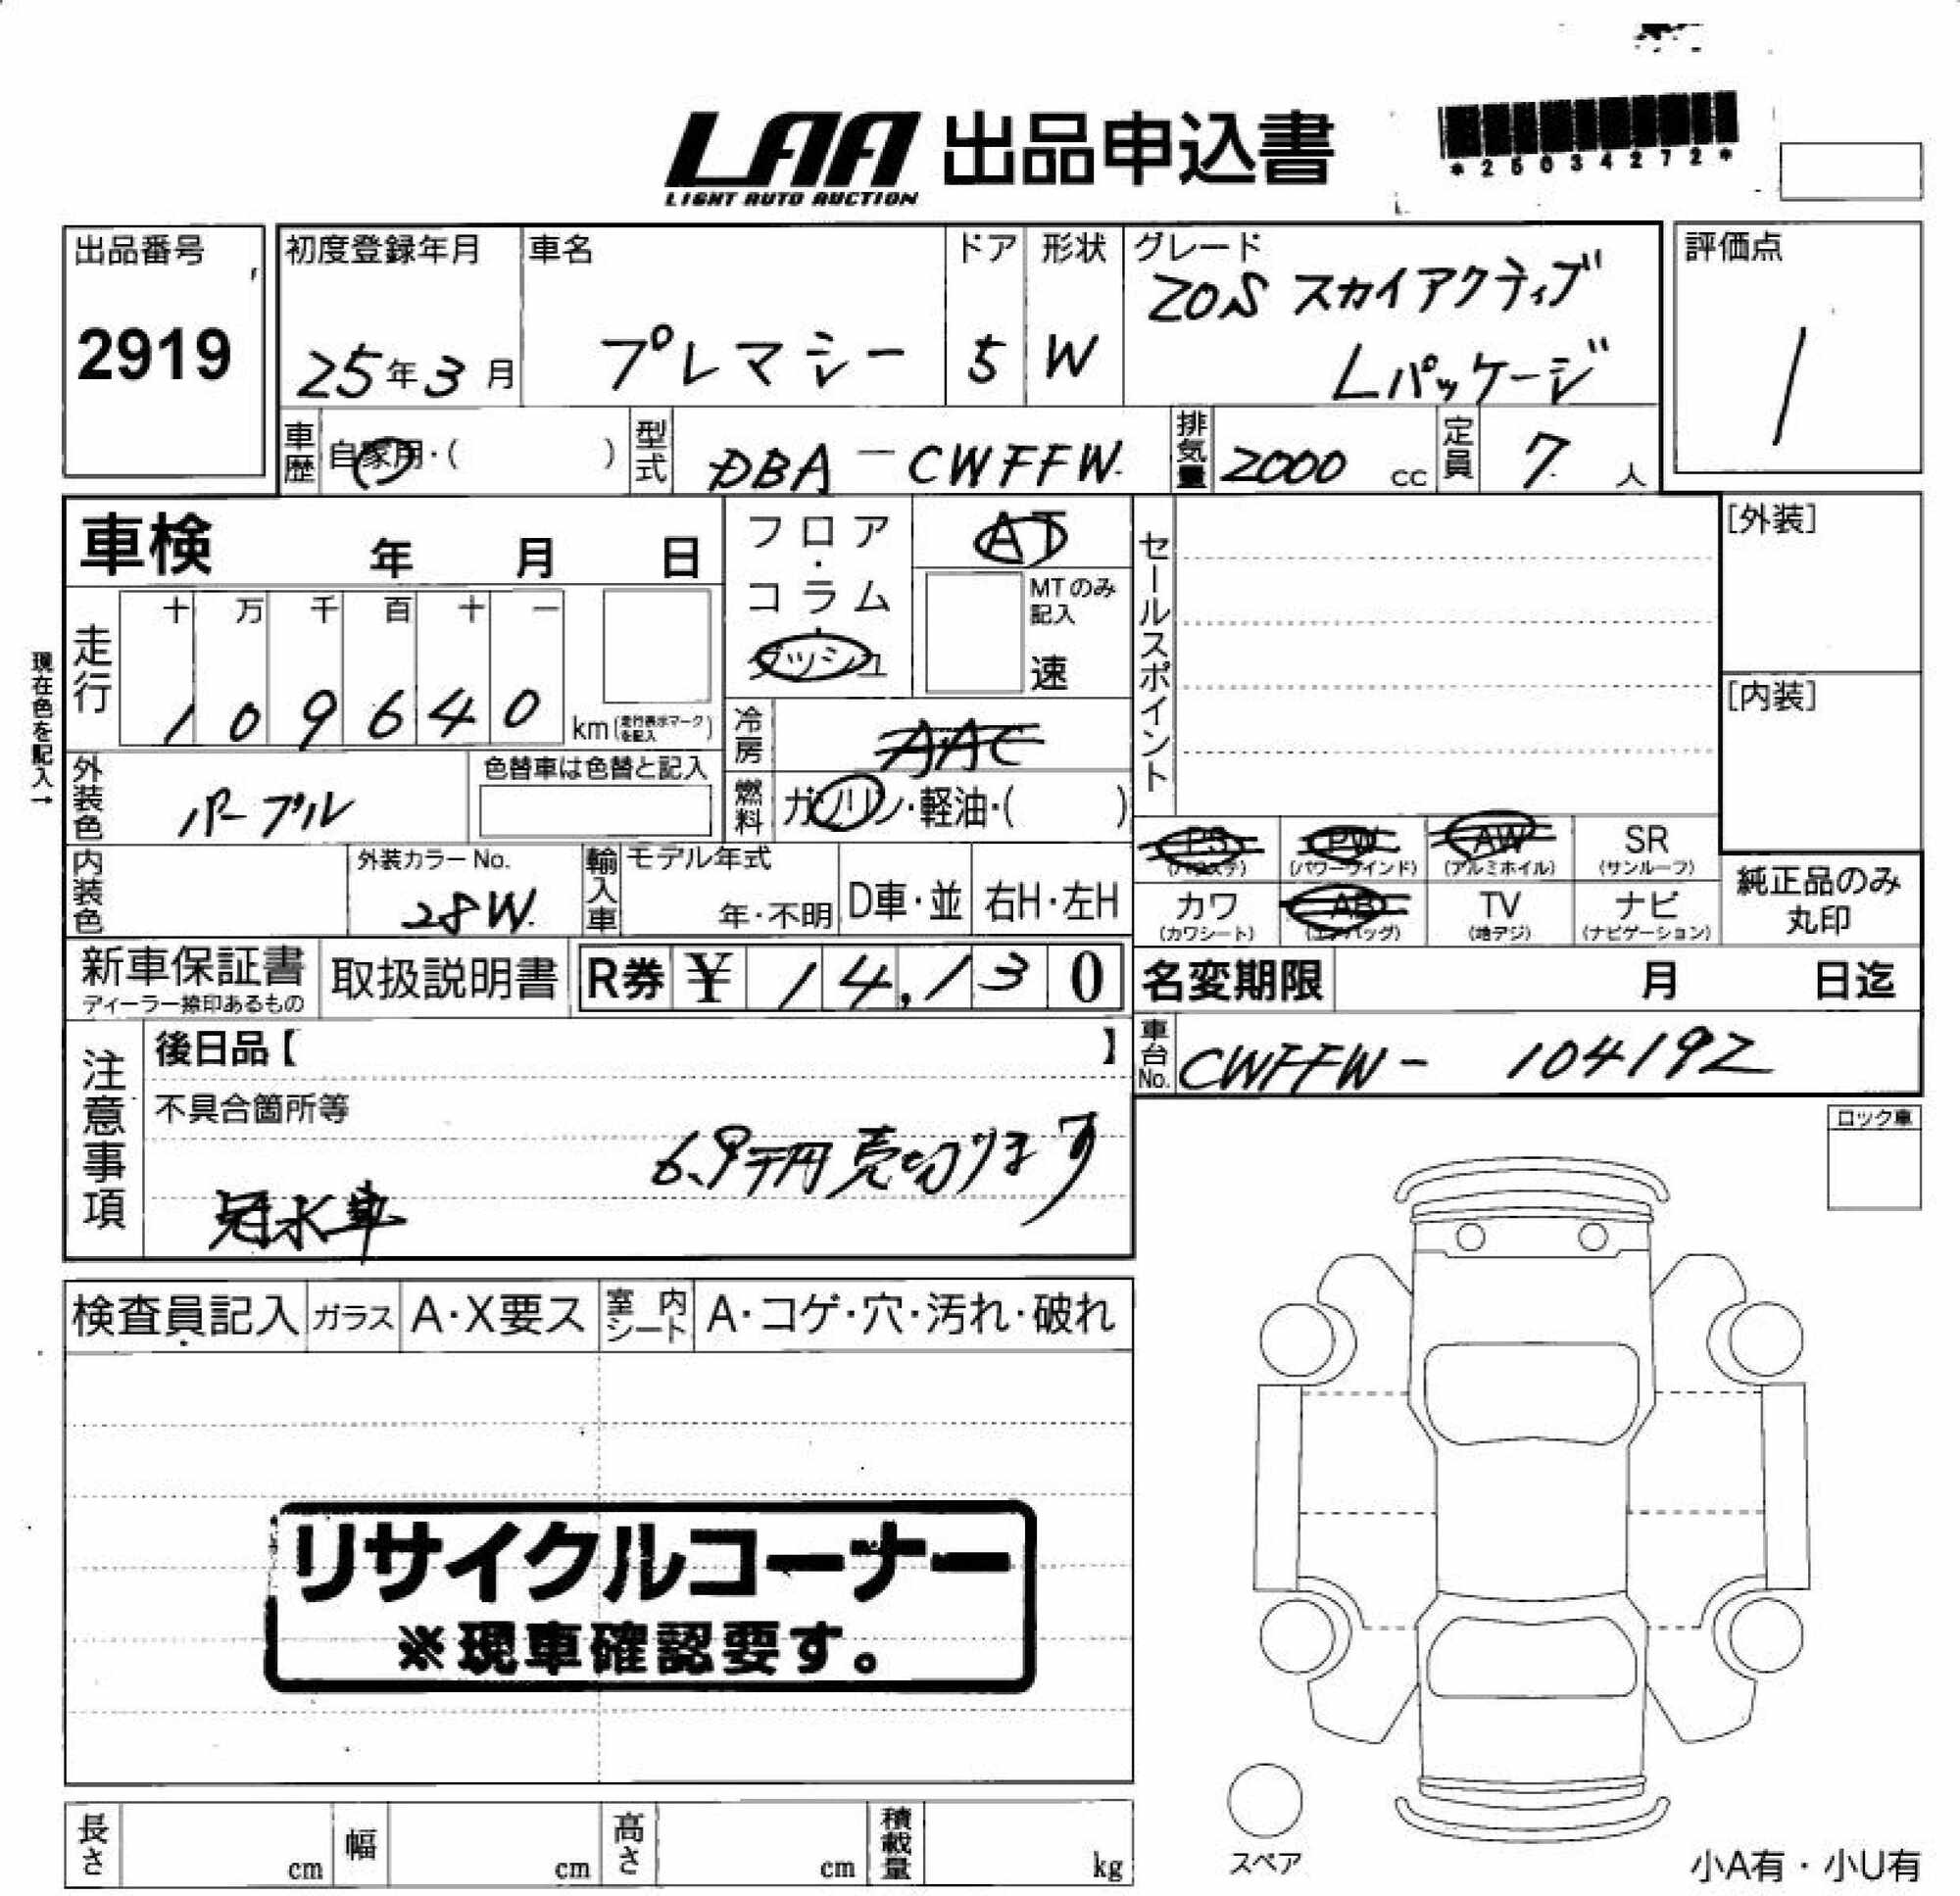 LAA 出品申込書
LIGHT AUTO AUCTION
*25034272*
出品番号
2919
初度登録年月
25年3月
車名
プレマシー
ドア
5
形状
W
グレード
20S スカイアクティブ
Lパッケージ
評価点
/
車歴
自家用・( )
型式
DBA-CWFFW
排気量
2000 cc
定員
7 人
車検 年 月 日
フロア・コラム・ダッシュ
AT
MTのみ記入
速
セールスポイント
[外装]
[内装]
現在色を記入→
走行
十 万 千 百 十 一
1 0 9 6 4 0
km(走行表示マークを記入)
冷房
AAC
外装色
パープル
色替車は色替と記入
燃料
ガソリン・軽油・( )
PS
(パワステ)
PW
(パワーウインド)
AW
(アルミホイル)
SR
(サンルーフ)
カワ
(カワシート)
AB
(エアバッグ)
TV
(地デジ)
ナビ
(ナビゲーション)
純正品のみ
丸印
内装色
外装カラーNo.
28W
輸入車
モデル年式
年・不明
D車・並
右H・左H
新車保証書
ディーラー捺印あるもの
取扱説明書
R券 ¥ 14,130
名変期限 月 日迄
車台No.
CWFFW-104192
注意事項
後日品【 】
不具合箇所等
6.9千円売切ります
冠水車
ロック車
検査員記入
ガラス
A・X要ス
室内シート
A・コゲ・穴・汚れ・破れ
リサイクルコーナー
※現車確認要す。
長さ cm
幅 cm
高さ cm
積載量 kg
スペア
小A有・小U有